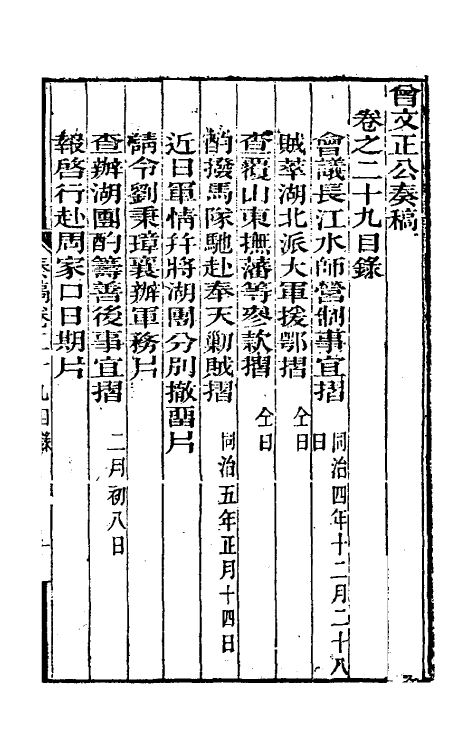 曾文正公奏稿
卷之二十九目錄
會議長江水師營制事宜摺 同治四年十二月二十八日
賊萃湖北派大軍援鄂摺 仝日
查覆山東撫藩等參款摺 仝日
酌撥馬隊馳赴奉天剿賊摺 同治五年正月十四日
近日軍情并將湖團分別撤留片
請令劉秉璋襄辦軍務片
查辦湖團酌籌善後事宜摺 二月初八日
報啓行赴周家口日期片
奏稿卷二十九目錄 一